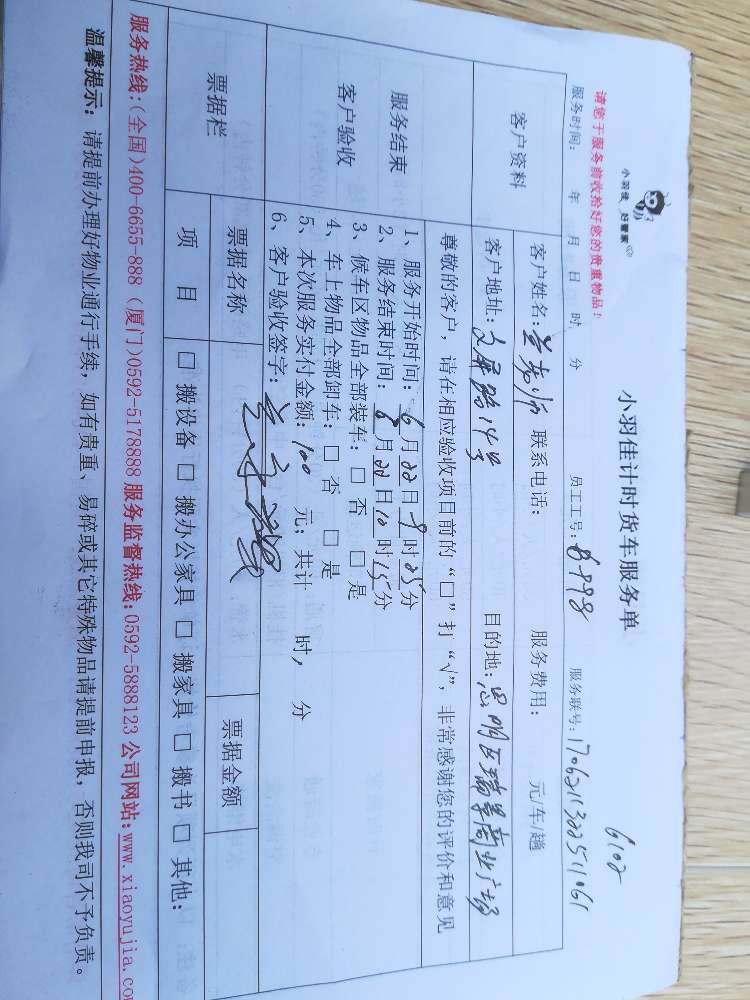 小羽佳 好管家
小羽佳计时货车服务单
6102
请您于服务前收拾好您的贵重物品!
服务时间: 年 月 日 时 分 员工工号: 8998 服务联号: 170621132251061
客户资料
客户姓名: 兰老师 联系电话: 服务费用: 元/车/趟
客户地址: 文屏路14号 目的地: 思明区瑞景商业广场
尊敬的客户,请在相应验收项目前的“□”打“√”,非常感谢您的评价和意见
服务结束
客户验收
1、服务开始时间: 6月22日9时25分
2、服务结束时间: 6月22日10时15分
3、候车区物品全部装车: □ 否 □ 是
4、车上物品全部卸车: □ 否 □ 是
5、本次服务实付金额: 100 元; 共计 时, 分
6、客户验收签字:
票据栏
票据名称 票据金额
项 目 □ 搬设备 □ 搬办公家具 □ 搬家具 □ 搬书 □ 其他:
服务热线:(全国)400-6655-888 (厦门)0592-5178888 服务监督热线:0592-5888123 公司网站:www.xiaoyujia.co
温馨提示: 请提前办理好物业通行手续, 如有贵重、易碎或其它特殊物品请提前申报, 否则我司不予负责。